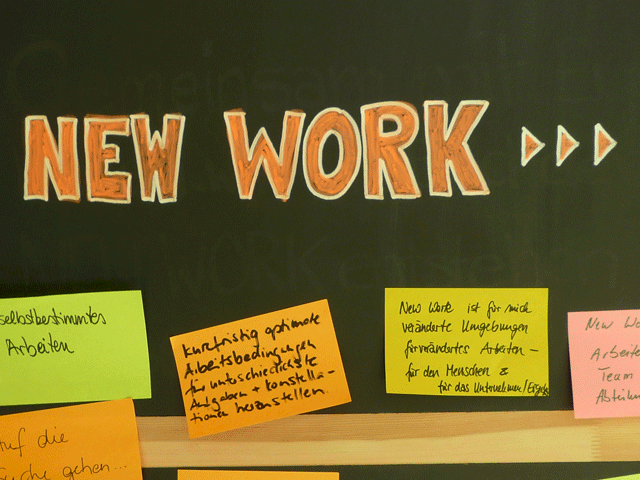 NEW WORK
selbstbestimmtes
Arbeiten
kurzfristig optimale
Arbeitsbedingungen
für unterschiedlichste
Aufgaben + Konstella-
tionen herstellen.
New Work ist für mich
veränderte Umgebungen
für verändertes Arbeiten -
für den Menschen &
für das Unternehmen/
New
Arbeite
Team
Abteilun
auf die
Suche gehen...